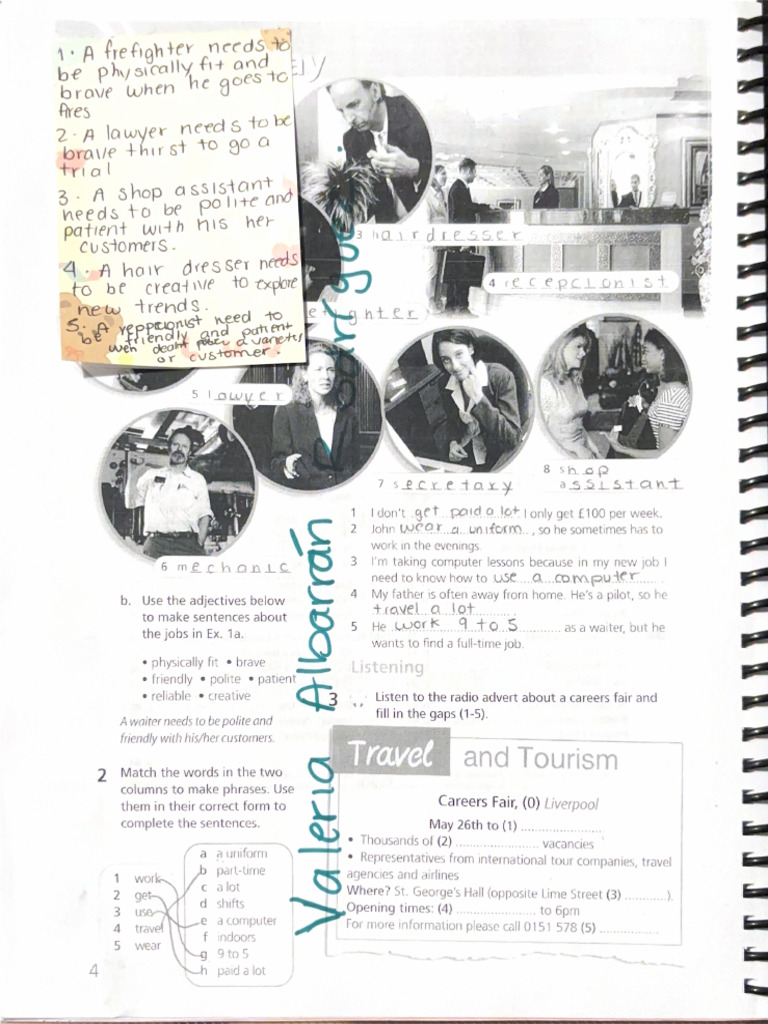 1. A frefighter needs to
be physically fit and
brave when he goes to
fires
2. A lawyer needs to be
brave thirst to go a
trial
3. A shop assistant
needs to be polite and
patient with his her
customers.
4. A hair dresser needs
to be creative to explore
new trends.
5. A reppcionist need to
be friendly and patient
a variets
or customer.
ay
3 hairdresser
4 recepcionist
ghter
5 lawyer
6 mechanic
7 secretary
8 shop
assistant
b. Use the adjectives below
to make sentences about
the jobs in Ex. 1a.
• physically fit • brave
• friendly • polite • patient
• reliable • creative
A waiter needs to be polite and
friendly with his/her customers.
2 Match the words in the two
columns to make phrases. Use
them in their correct form to
complete the sentences.
1 work
2 get
3 use
4 travel
5 wear
a a uniform
b part-time
c a lot
d shifts
e a computer
f indoors
g 9 to 5
h paid a lot
4
1 I don't get paid a lot I only get £100 per week.
2 John wear a uniform, so he sometimes has to
work in the evenings.
3 I'm taking computer lessons because in my new job I
need to know how to use a computer.
4 My father is often away from home. He's a pilot, so he
travel a lot.
5 He work 9 to 5 as a waiter, but he
wants to find a full-time job.
Listening
3 Listen to the radio advert about a careers fair and
fill in the gaps (1-5).
Travel and Tourism
Careers Fair, (0) Liverpool
May 26th to (1) ....................
• Thousands of (2) .................... vacancies
• Representatives from international tour companies, travel
agencies and airlines
Where? St. George's Hall (opposite Lime Street (3) ............).
Opening times: (4) .................... to 6pm
For more information please call 0151 578 (5) ...............
Valeria Albarrán